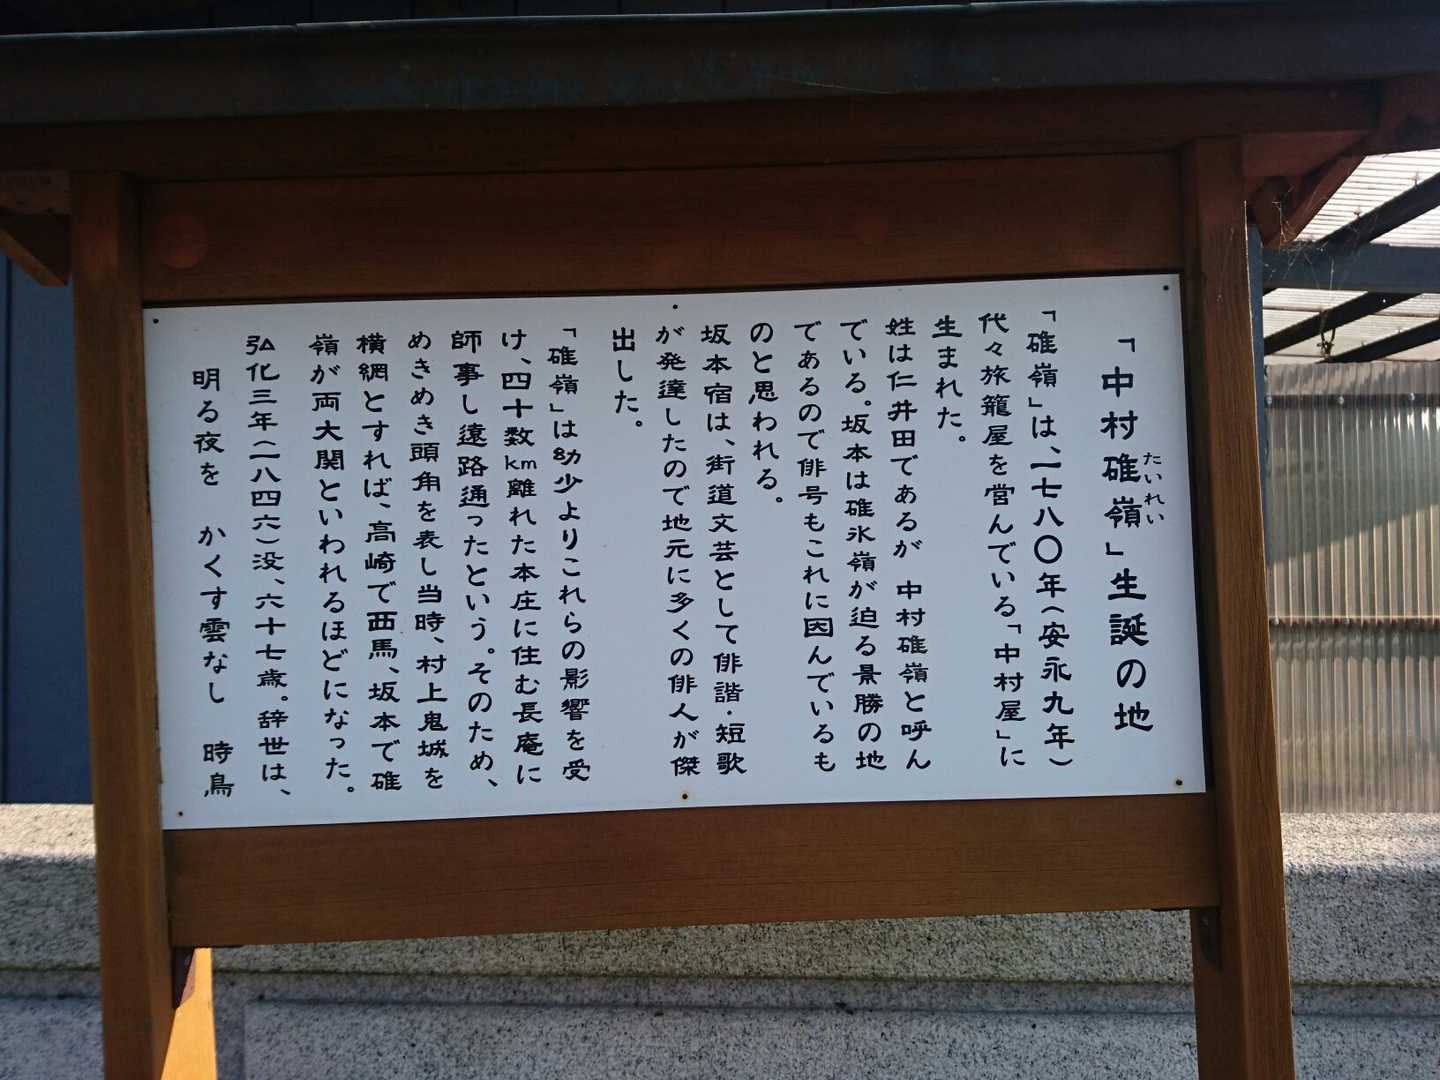 「中村碓嶺」生誕の地
たいれい
「碓嶺」は、一七八〇年（安永九年）
代々旅籠屋を営んでいる「中村屋」に
生まれた。
姓は仁井田であるが 中村碓嶺と呼ん
でいる。坂本は碓氷嶺が迫る景勝の地
であるので俳号もこれに因んでいるも
のと思われる。
坂本宿は、街道文芸として俳諧・短歌
が発達したので地元に多くの俳人が傑
出した。
「碓嶺」は幼少よりこれらの影響を受
け、四十数km離れた本庄に住む長庵に
師事し遠路通ったという。そのため、
めきめき頭角を表し当時、村上鬼城を
横綱とすれば、高崎で西馬、坂本で碓
嶺が両大関といわれるほどになった。
弘化三年（一八四六）没、六十七歳。辞世は、
明る夜を かくす雲なし 時鳥